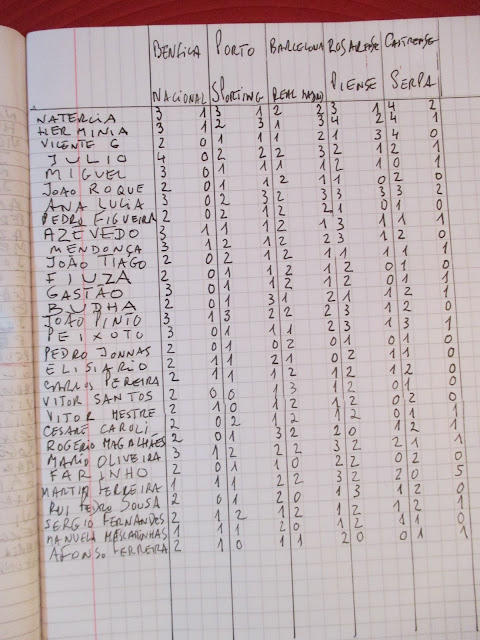 BENFICA PORTO BARCELONA ROSARENSE CASTRENSE
NACIONAL SPORTING REAL MADRID PIENSE SERPA
NATERCIA 3 1 3 1 2 2 3 1 4 2
HERMINIA 3 1 2 3 1 3 4 2 4 1
VICENTE G 2 0 1 1 1 2 1 3 4 0
JULIO 4 0 2 2 2 3 2 1 2 1
MIGUEL 3 0 1 1 1 1 2 1 0 1
JOÃO ROQUE 2 0 1 1 2 1 1 0 2 0
ANA LUCIA 3 0 2 3 2 3 3 3 3 2
PEDRO FIGUEIRA 2 0 2 1 2 2 1 0 1 0
AZEVEDO 3 1 1 2 2 1 3 1 1 1
MENDONÇA 3 1 1 2 1 2 3 1 2 0
JOÃO TIAGO 2 0 2 1 2 1 1 1 1 1
FIUZA 2 0 1 1 2 1 2 0 1 0
GASTÃO 3 0 1 1 2 1 2 0 1 1
BUDHA 2 0 1 3 1 2 1 1 2 1
JOÃO PINTO 3 1 3 2 2 2 3 1 2 0
PEIXOTO 3 0 1 1 1 2 3 1 3 1
PEDRO JONNAS 2 0 1 1 2 1 2 0 1 0
ELISIARIO 2 1 1 2 1 0 2 1 1 0
CARLOS PEREIRA 2 1 1 1 2 1 2 1 2 0
VITOR SANTOS 2 0 0 1 3 1 2 0 1 0
VITOR MESTRE 2 1 0 1 2 1 2 0 0
CESARE CAROLI 2 0 2 1 2 1 2 0 1 1
ROGÉRIO MAGALHÃES 2 0 1 3 2 2 0 1 2 1
MARIO OLIVEIRA 3 1 2 2 2 3 2 2 1 1
FARINHO 2 0 1 1 0 2 2 0 2 0
MARTIM FERREIRA 1 1 1 2 2 3 2 2 0 5
RUI PEDRO SOUSA 2 0 1 2 0 1 3 1 2 0
SERGIO FERNANDES 2 1 2 1 2 1 2 1 1
MANUELA MASCARINHAS 1 1 1 2 0 1 2 1 1 0
AFONSO FERREIRA 2 1 0 1 1 2 0 0 1 1